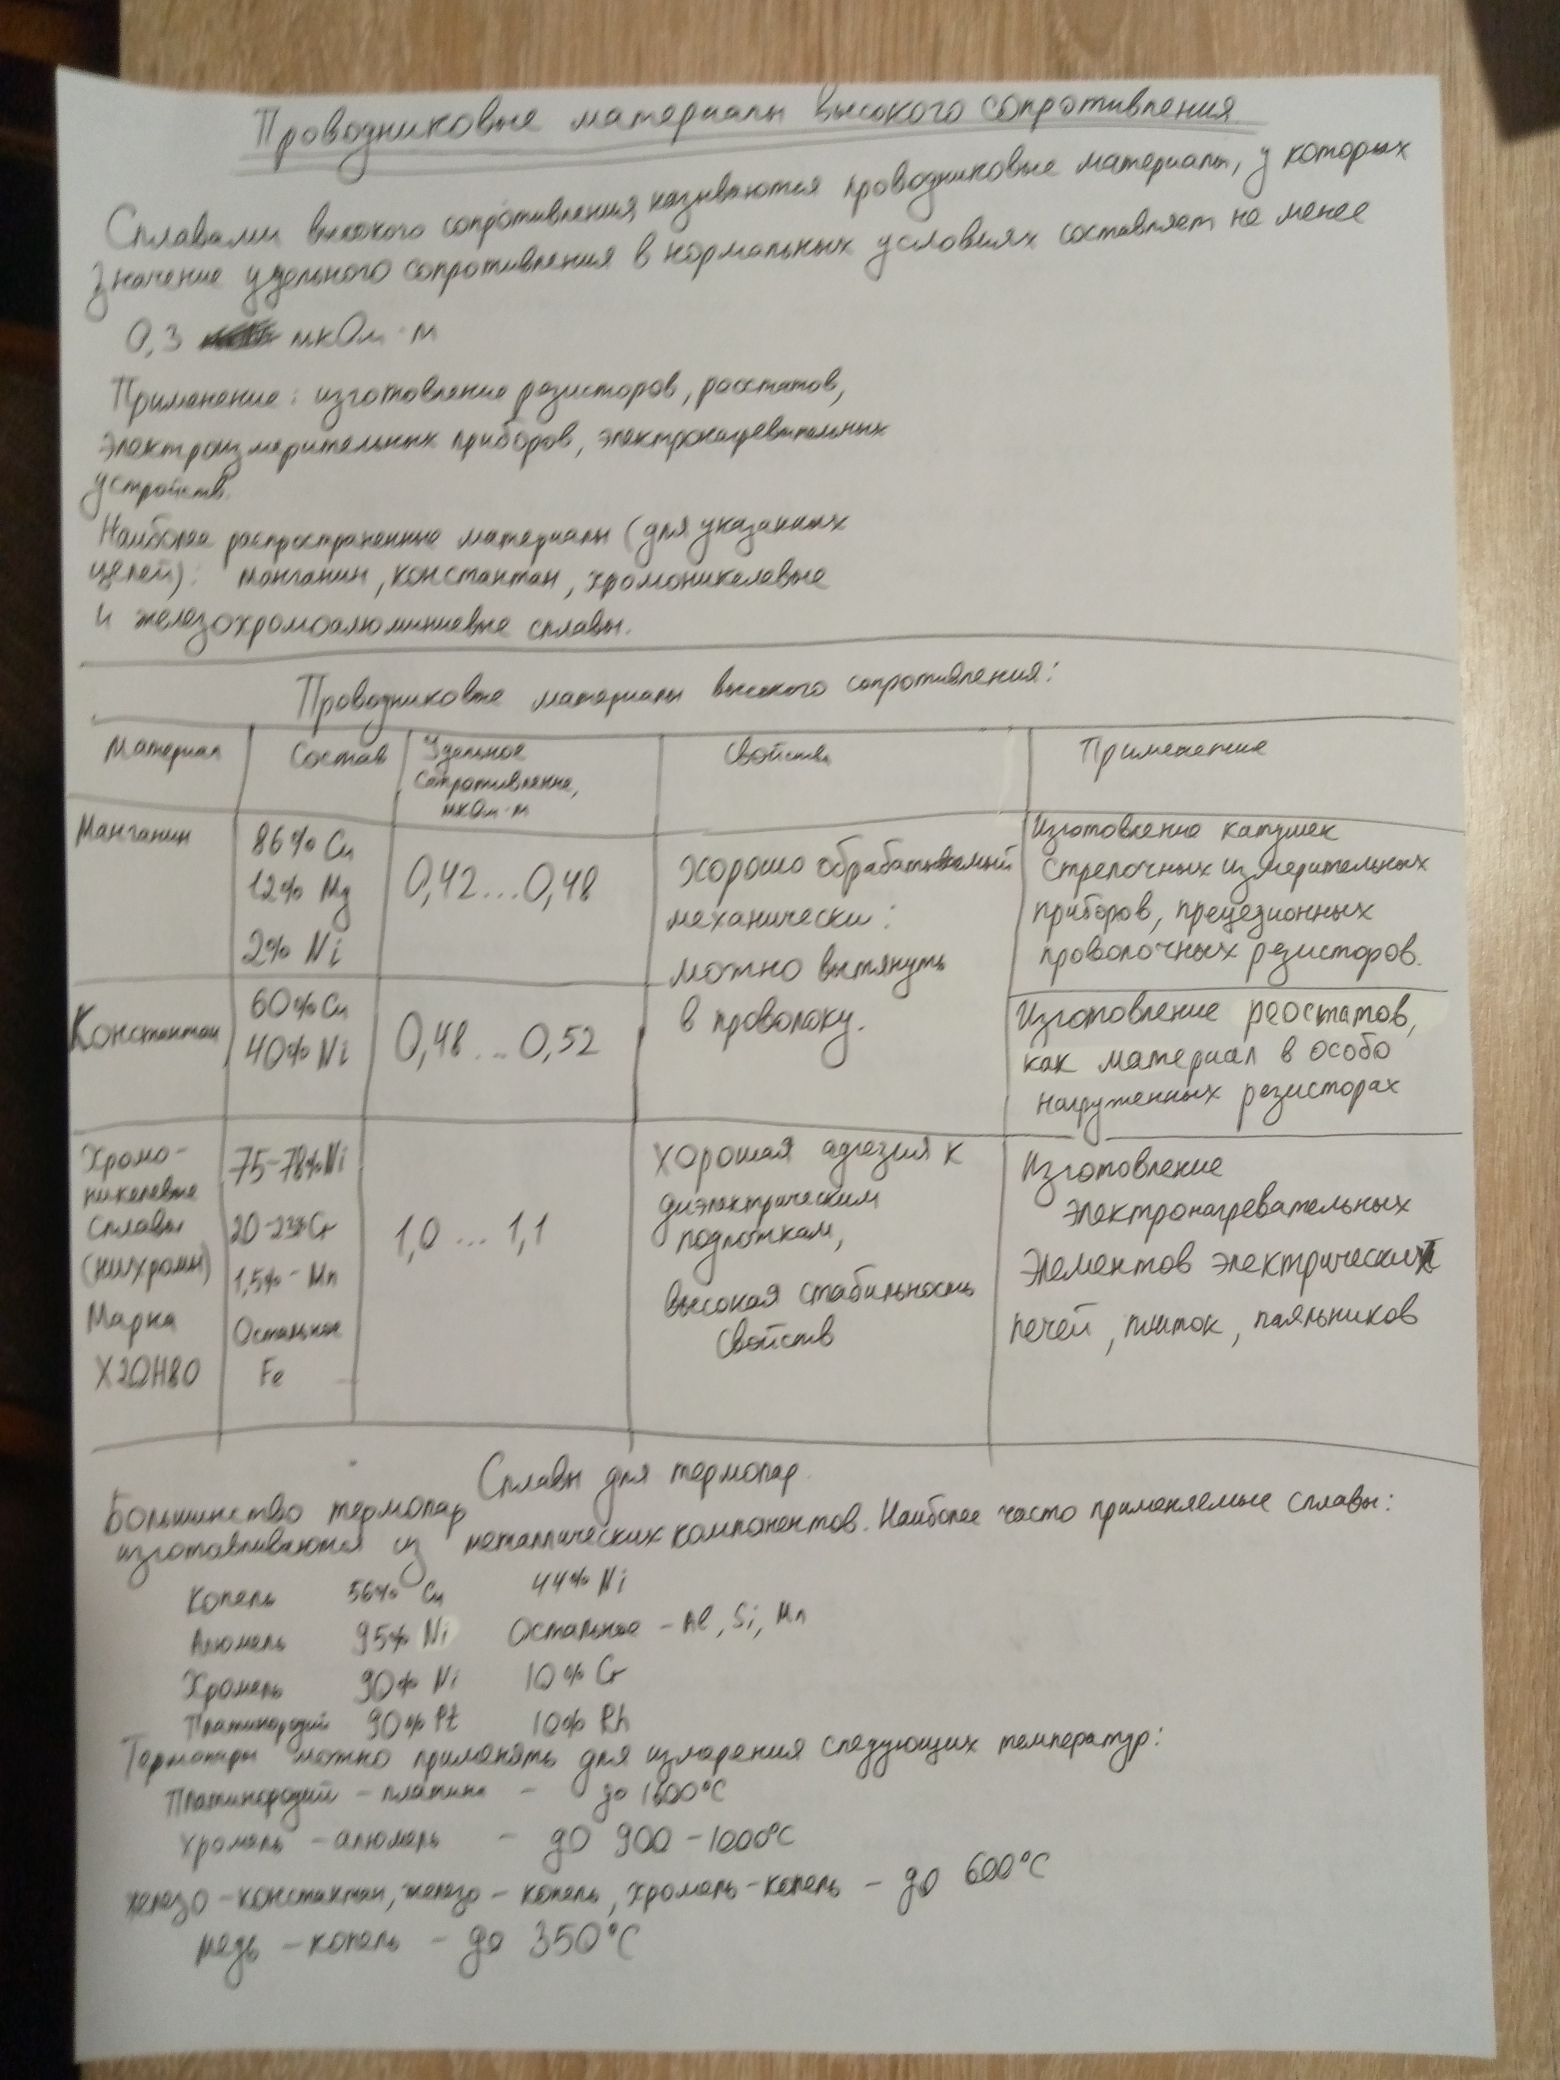 Проводниковые материалы высокого сопротивления
Сплавами высокого сопротивления называются проводниковые материалы, у которых
значение удельного сопротивления в нормальных условиях составляет не менее
0,3 мкОм·м
Применение: изготовление резисторов, реостатов,
электроизмерительных приборов, электронагревательных
устройств.
Наиболее распространенные материалы (для указанных
целей): манганин, константан, хромоникелевые
и железохромоалюминиевые сплавы.
Проводниковые материалы высокого сопротивления:
Материал
Состав
Удельное
Сопротивление,
мкОм·м
Свойства
Применение
Манганин
86% Cu
12% Mg
2% Ni
0,42...0,48
хорошо обрабатываемый
механически:
можно вытянуть
в проволоку.
Изготовление катушек
стрелочных измерительных
приборов, прецезионных
проволочных резисторов.
Константан
60% Cu
40% Ni
0,48...0,52
Изготовление реостатов,
как материал в особо
нагруженных резисторах
Хромо-
никелевые
сплавы
(нихромы)
Марка
Х20Н80
75-78% Ni
20-23% Cr
1,5% - Mn
Остальное
Fe
1,0 ... 1,1
хорошая адгезия к
диэлектрическим
подложкам,
высокая стабильность
свойств
Изготовление
электронагревательных
элементов электрических
печей, плиток, паяльников
Сплавы для термопар.
Большинство термопар
изготавливаются из металлических компонентов. Наиболее часто применяемые сплавы:
Копель 56% Cu 44% Ni
Алюмель 95% Ni Остальное - Al, Si, Mn
Хромель 90% Ni 10% Cr
Платинородий 90% Pt 10% Rh
Термопары можно применять для измерения следующих температур:
Платинородий - платина - до 1600°C
хромель - алюмель - до 900 - 1000°C
железо - константан, железо - копель, хромель - копель - до 600°C
медь - копель - до 350°C